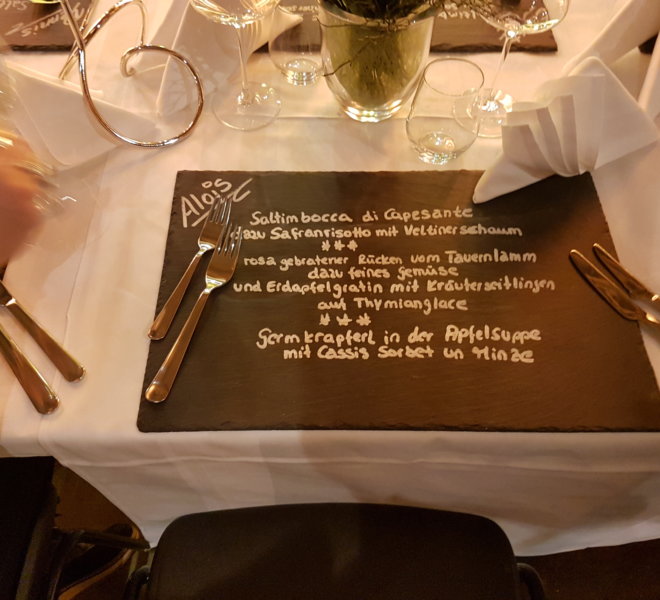 Alois
Saltimbocca di Capesante
dazu Safranrisotto mit Veltinerschaum
***
rosa gebratener Rücken vom Tauernlamm
dazu feines Gemüse
und Erdapfelgratin mit Kräuterseitlingen
auf Thymianglace
***
Germkrapferl in der Apfelsuppe
mit Cassis Sorbet un Minze